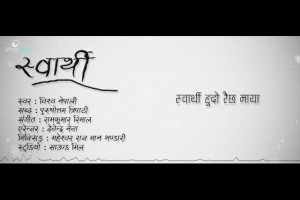 स्वार्थी
स्वर : विश्व नेपाली
सब्द : पुरुशोत्तम त्रिपाठी
संगीत : रामकुमार रिमाल
एरेन्जर : देवेन्द्र नेवा
मिक्सिङ : महेश्वर राज मान भण्डारी
स्टुडियो : साउण्ड मिल
स्वार्थी हुदो रैछ माया